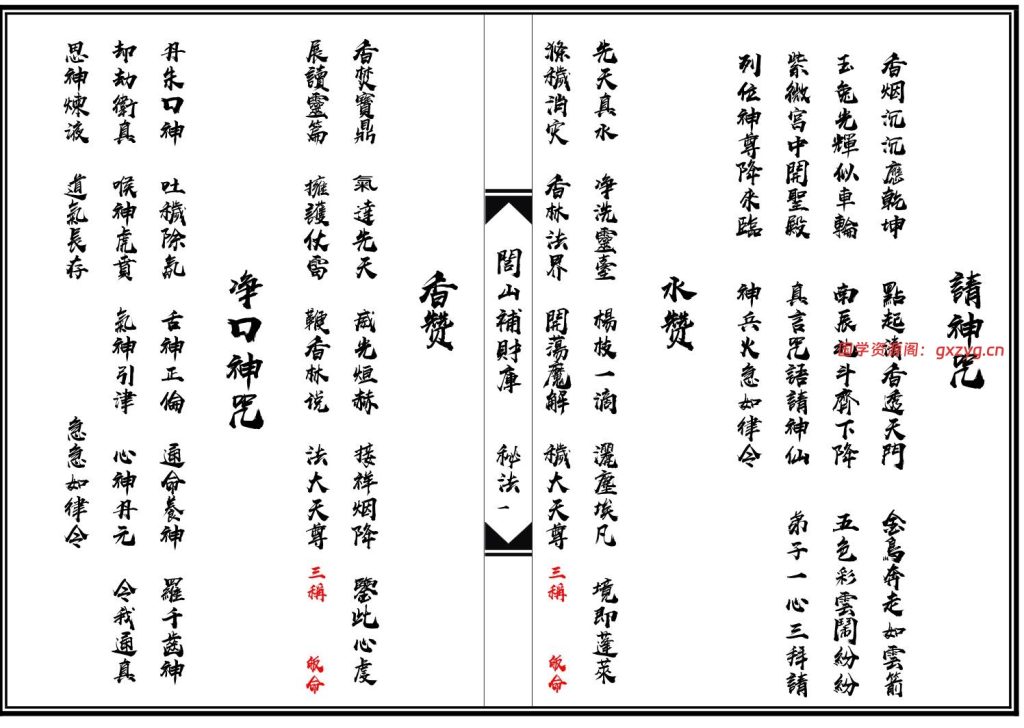 請神咒
香烟沉沉應乾坤 點起清香透天門 金鳥奔走如雲箭
玉兔光輝似車輪 南辰北斗齊下降 五色彩雲鬧紛紛
紫微宮中開聖殿 真言咒語請神仙 弟子一心三拜請
列位神尊降來臨 神兵火急如律令
国学资源阁：gxzyg.cn
水赞
先天真水 净洗靈臺 楊枝一滴 灑塵埃凡 境即蓬萊
滌穢消灾 香林法界 開蕩魔解 穢大天尊 三稱 皈命
閭山補財庫 秘法一
香赞
香焚寶鼎 氣達先天 威光烜赫 接祥烟降 鑒此心虔
展讀靈篇 擁護仗雷 鞭香林说 法大天尊 三稱 皈命
净口神咒
丹朱口神 吐穢除氣 舌神正倫 通命養神 羅千齒神
却劫衛真 喉神虎賁 氣神引津 心神丹元 令我通真
思神煉液 道氣長存 急急如律令